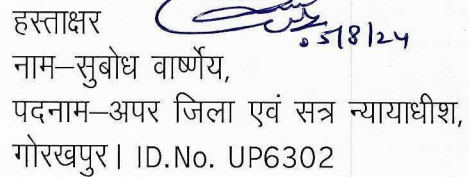 हस्ताक्षर
5/8/24
नाम–सुबोध वार्ष्णेय,
पदनाम–अपर जिला एवं सत्र न्यायाधीश,
गोरखपुर। ID.No. UP6302